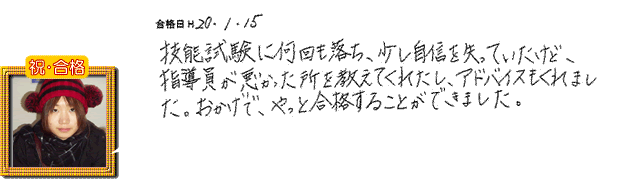 合格日 H20・1・15
技能試験に何回も落ち、少し自信を失っていたけど、
指導員が悪かった所を教えてくれたし、アドバイスもくれまし
た。おかげで、やっと合格することができました。
祝・合格